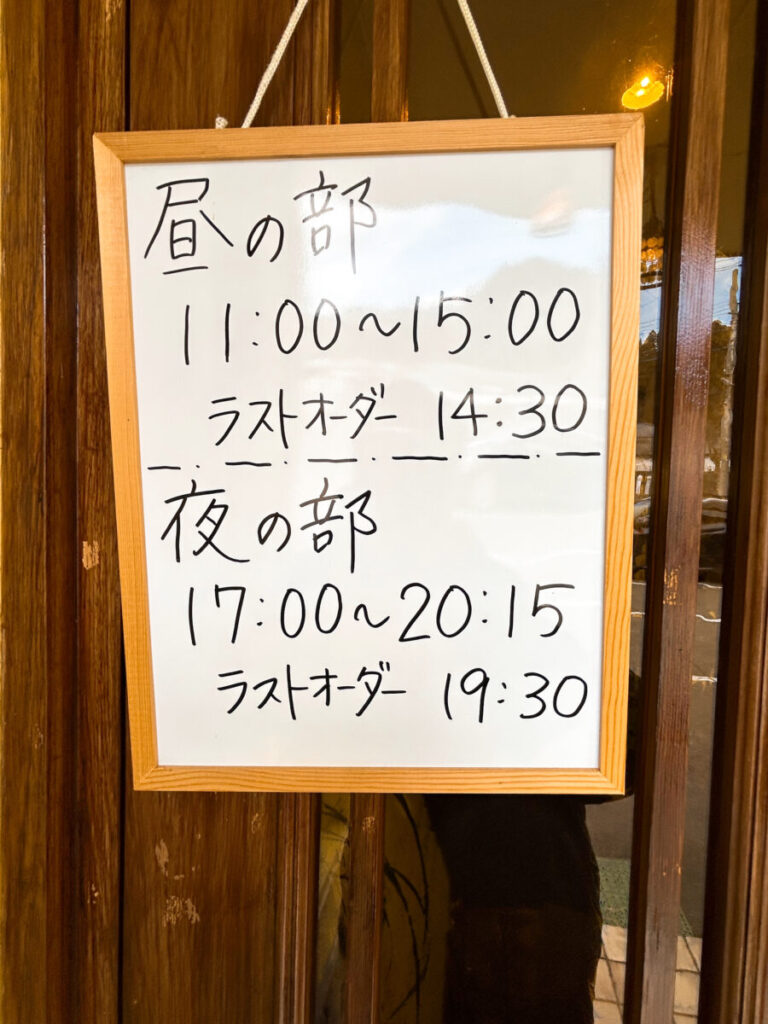 昼の部
11:00～15:00
ラストオーダー 14:30
夜の部
17:00～20:15
ラストオーダー 19:30